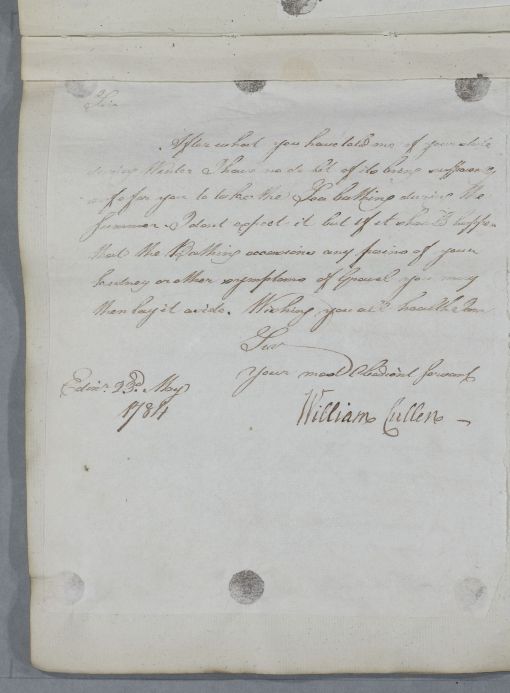 Sir
After what you have told me of your state
during Winter I have no doubt of its being sufficiently
safe for you to take the Sea bathing during the
Summer. I dont expect it but if it should happen
that the Bathing occasions any pains of your
kidney or other symptoms of Gravel you may
then lay it aside. Wishing you all health I am
Sir
your most Obedient servant
Edinr. 23d. May
1784
William Cullen